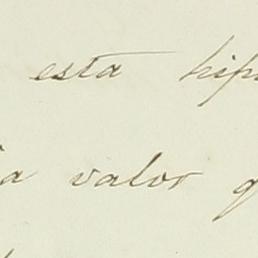 esta hip
a valor q